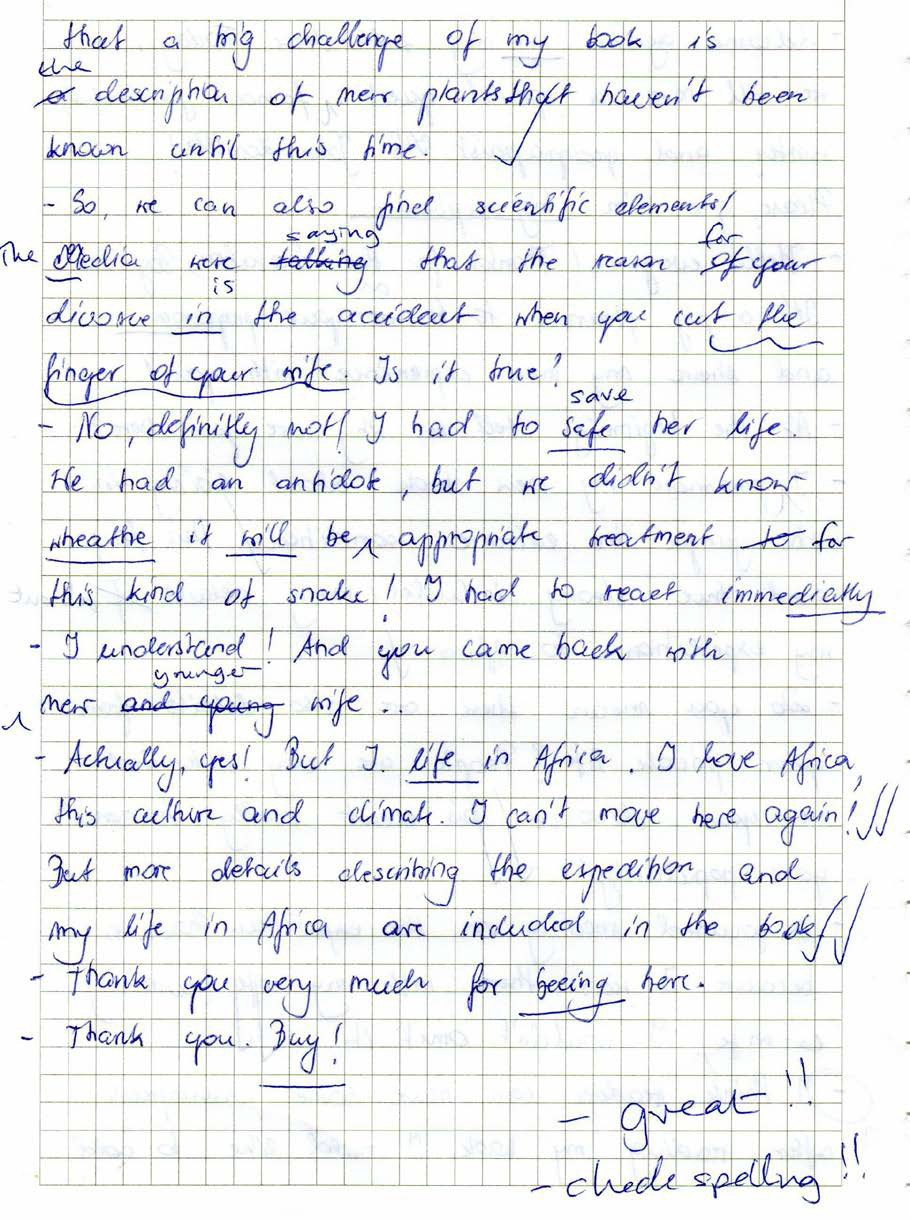 that a big challenge of my book is
the
a description of new plants that haven't been
known until this time.
- So, we can also find scientific elements!
saying for
The Media were talking that the reason of your
is
divorse in the accident when you cut the
finger of your wife. Is it true?
save
- No, definitly not! I had to safe her life.
We had an antidote, but we didn't know
wheathe it will be appropriate treatment to for
this kind of snake! I had to react immediatly
- I understand! And you came back with
younger
new and young wife ..
- Actually, yes! But I life in Africa. I love Africa,
this culture and climate. I can't move here again!
But more details describing the expedition and
my life in Africa are included in the book
- Thank you very much for beeing here.
- Thank you. Buy!
- great!!
- check spelling!!